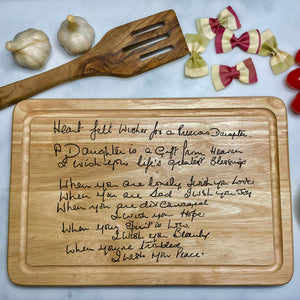 Heart felt Wishes for a Precious Daughter
A Daughter is a Gift from Heaven
I wish you life's greatest Blessings
When you are lonely I wish you Love
When you are Sad I wish you Joy
When you are discouraged
I wish you Hope
When your Spirit is Low
I wish you Beauty
When you're troubled
I wish you Peace.